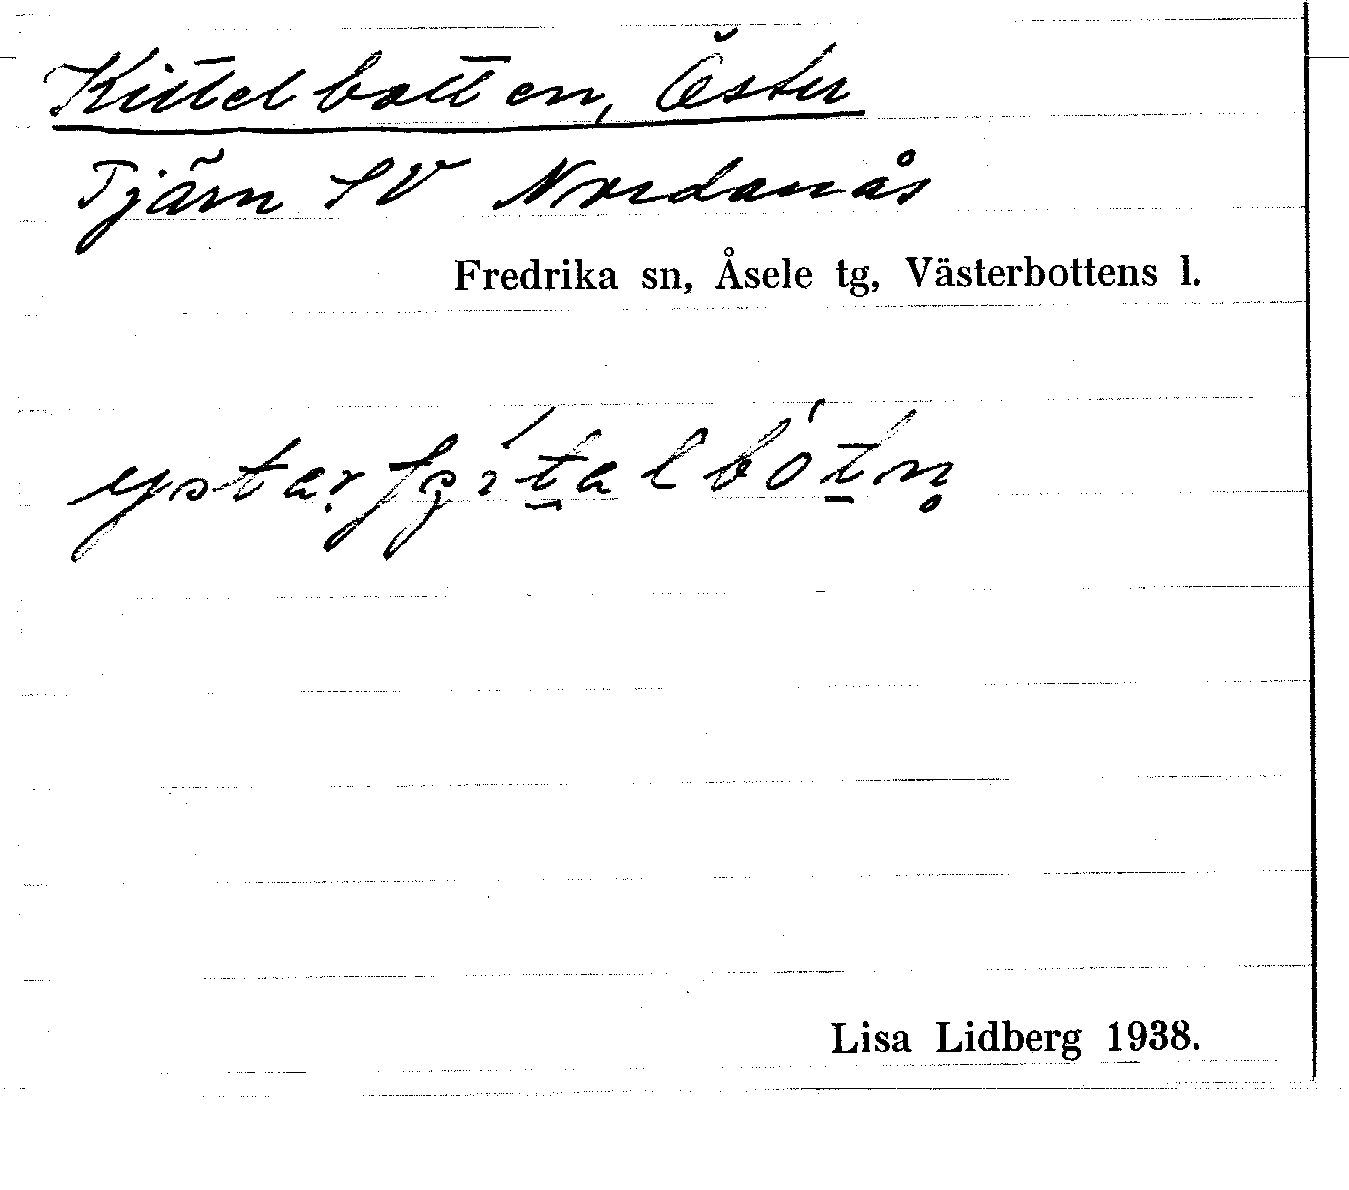 Kittelbotten, Öster
Tjärn SV Nordanås
Fredrika sn, Åsele tg, Västerbottens l.
Lisa Lidberg 1938.